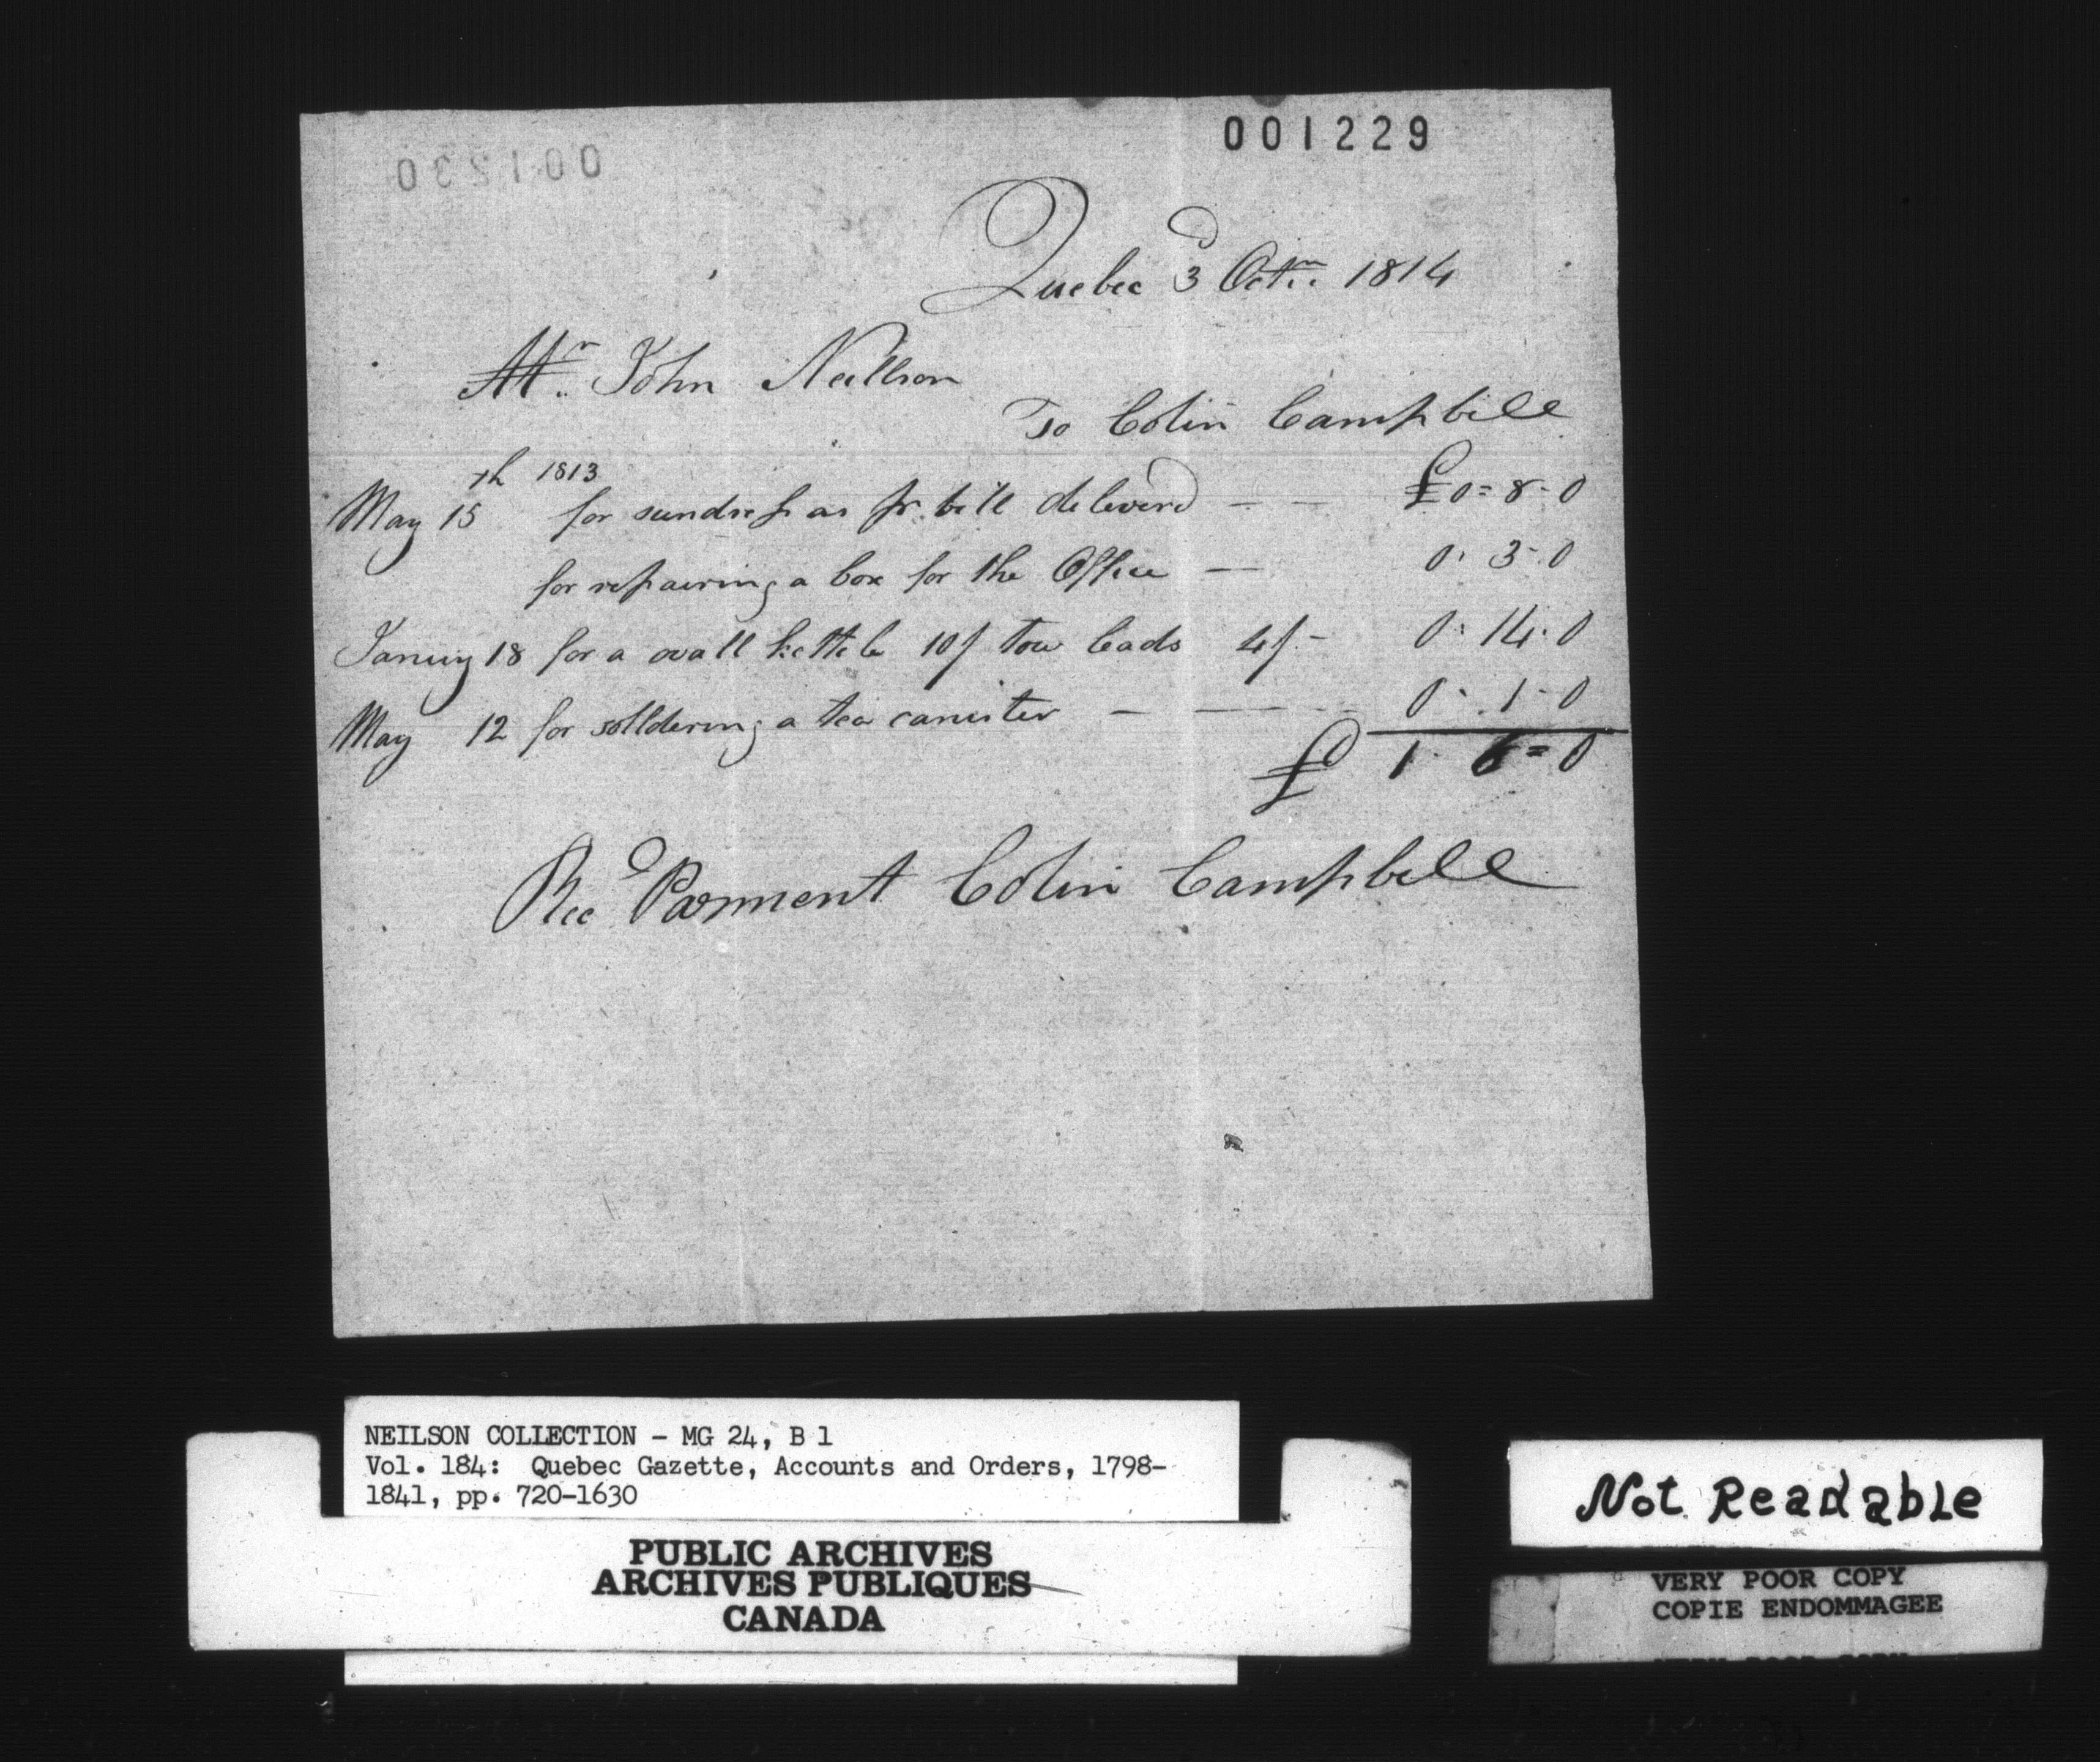 001229
001230
Quebec 3d Octr. 1814
Mr. John Neillson
To Colin Campbell
May 15th 1813 for sundrys as pr. bill deleverd — — £0=8-0
for repairing a box for the Office — 0-3-0
Janury 18 for a ovall kettele 10/ tow leads 4/- 0-14-0
May 12 for solldering a tea canister — — 0-1-0
£ 1-6=0
Recd Paament Colin Campbell
NEILSON COLLECTION - MG 24, B 1
Vol. 184: Quebec Gazette, Accounts and Orders, 1798-
1841, pp. 720-1630
PUBLIC ARCHIVES
ARCHIVES PUBLIQUES
CANADA
Not Readable
VERY POOR COPY
COPIE ENDOMMAGEE
VERY POOR COPY